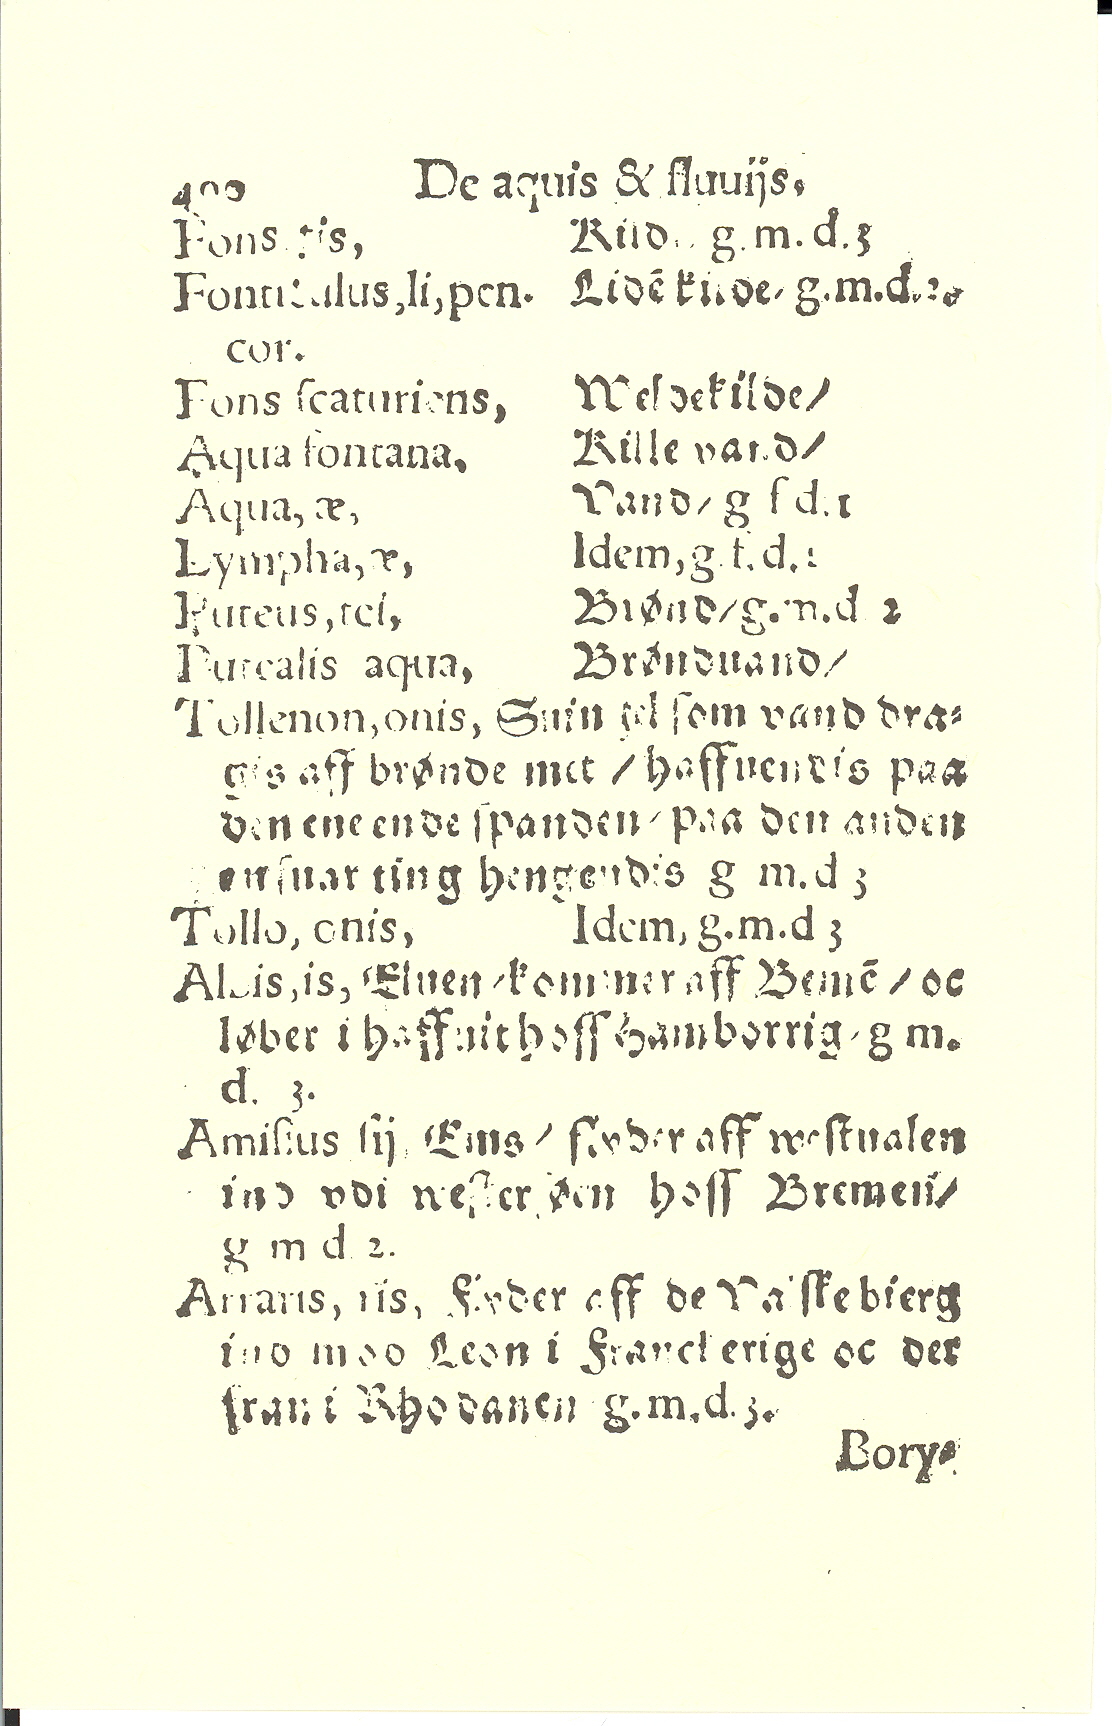 400 De aquis & fluuijs.
Fons tis, Kild g.m.d.3
Fonticulus,li,pen. Lidē kilde/ g.m.d.2.
cor.
Fons ſcaturiens, Veldekilde/
Aqua fontana, Kille vand/
Aqua, æ, Vand/ g f d.1
Lympha,æ, Idem,g.f.d.1
Puteus,tei, Brønd/g.m.d 2
Putealis aqua, Brønduand/
Tollenon,onis, Suin ſom vand dra⸗
gis aff brønde met / haffuendis paa
den ene ende ſpanden/ paa den anden
en ſuar ting hengendis g m.d 3
Tollo, onis, Idem, g.m.d 3
Albis,is, Eluen/kommer aff Bemē / oc
løber i haffuit hoſſ Hamborrig/ g m.
d. 3.
Amiſius ſij, Ems/ flyder aff weſtualen
ind vdi weſter ſøen hoſſ Bremen/
g m d 2.
Arraris, ris, flyder aff de Vaſſke bierg
ind moo Leon i Franckerige oc der
fran i Rhodanen g.m.d.3.
Bory⸗